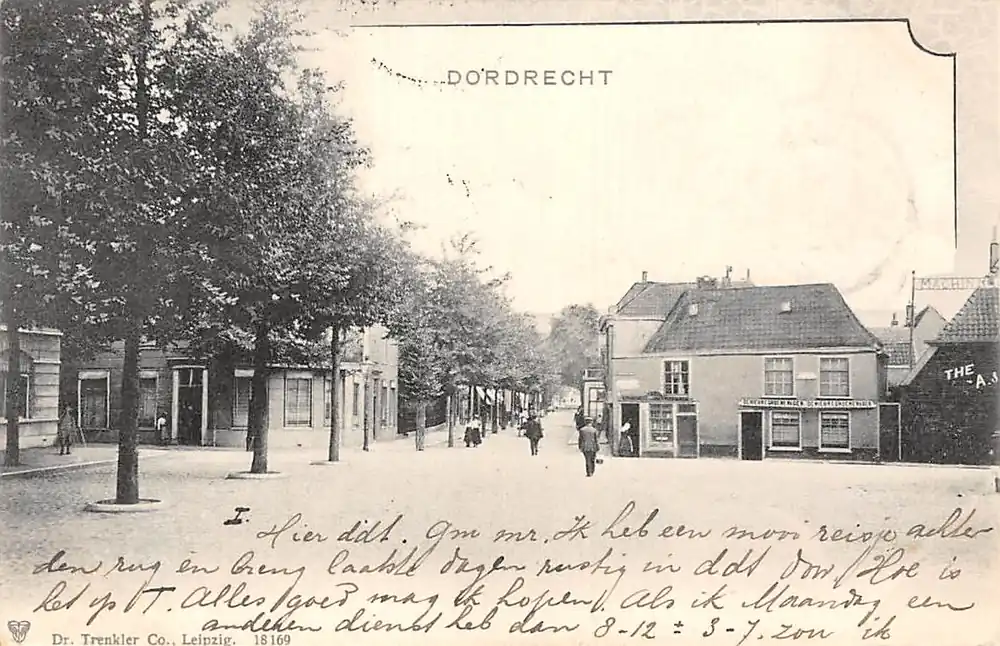 DORDRECHT
MACHIN
THE
"A.
I.
Hier ddt. Gm mr. Ik heb een mooi reisje achter
den rug en breng laatste dagen rustig in ddt door. Hoe is
het op T. Alles goed mag ik hopen. Als ik Maandag een
anderen dienst heb dan 8-12 ± 3-7. zou ik
Dr. Trenkler Co., Leipzig. 18169